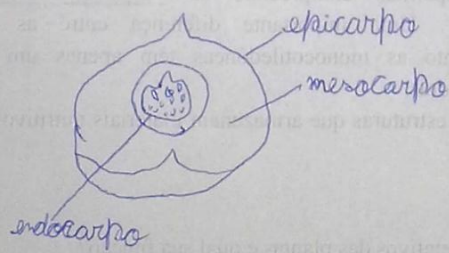 epicarpo
mesocarpo
endocarpo